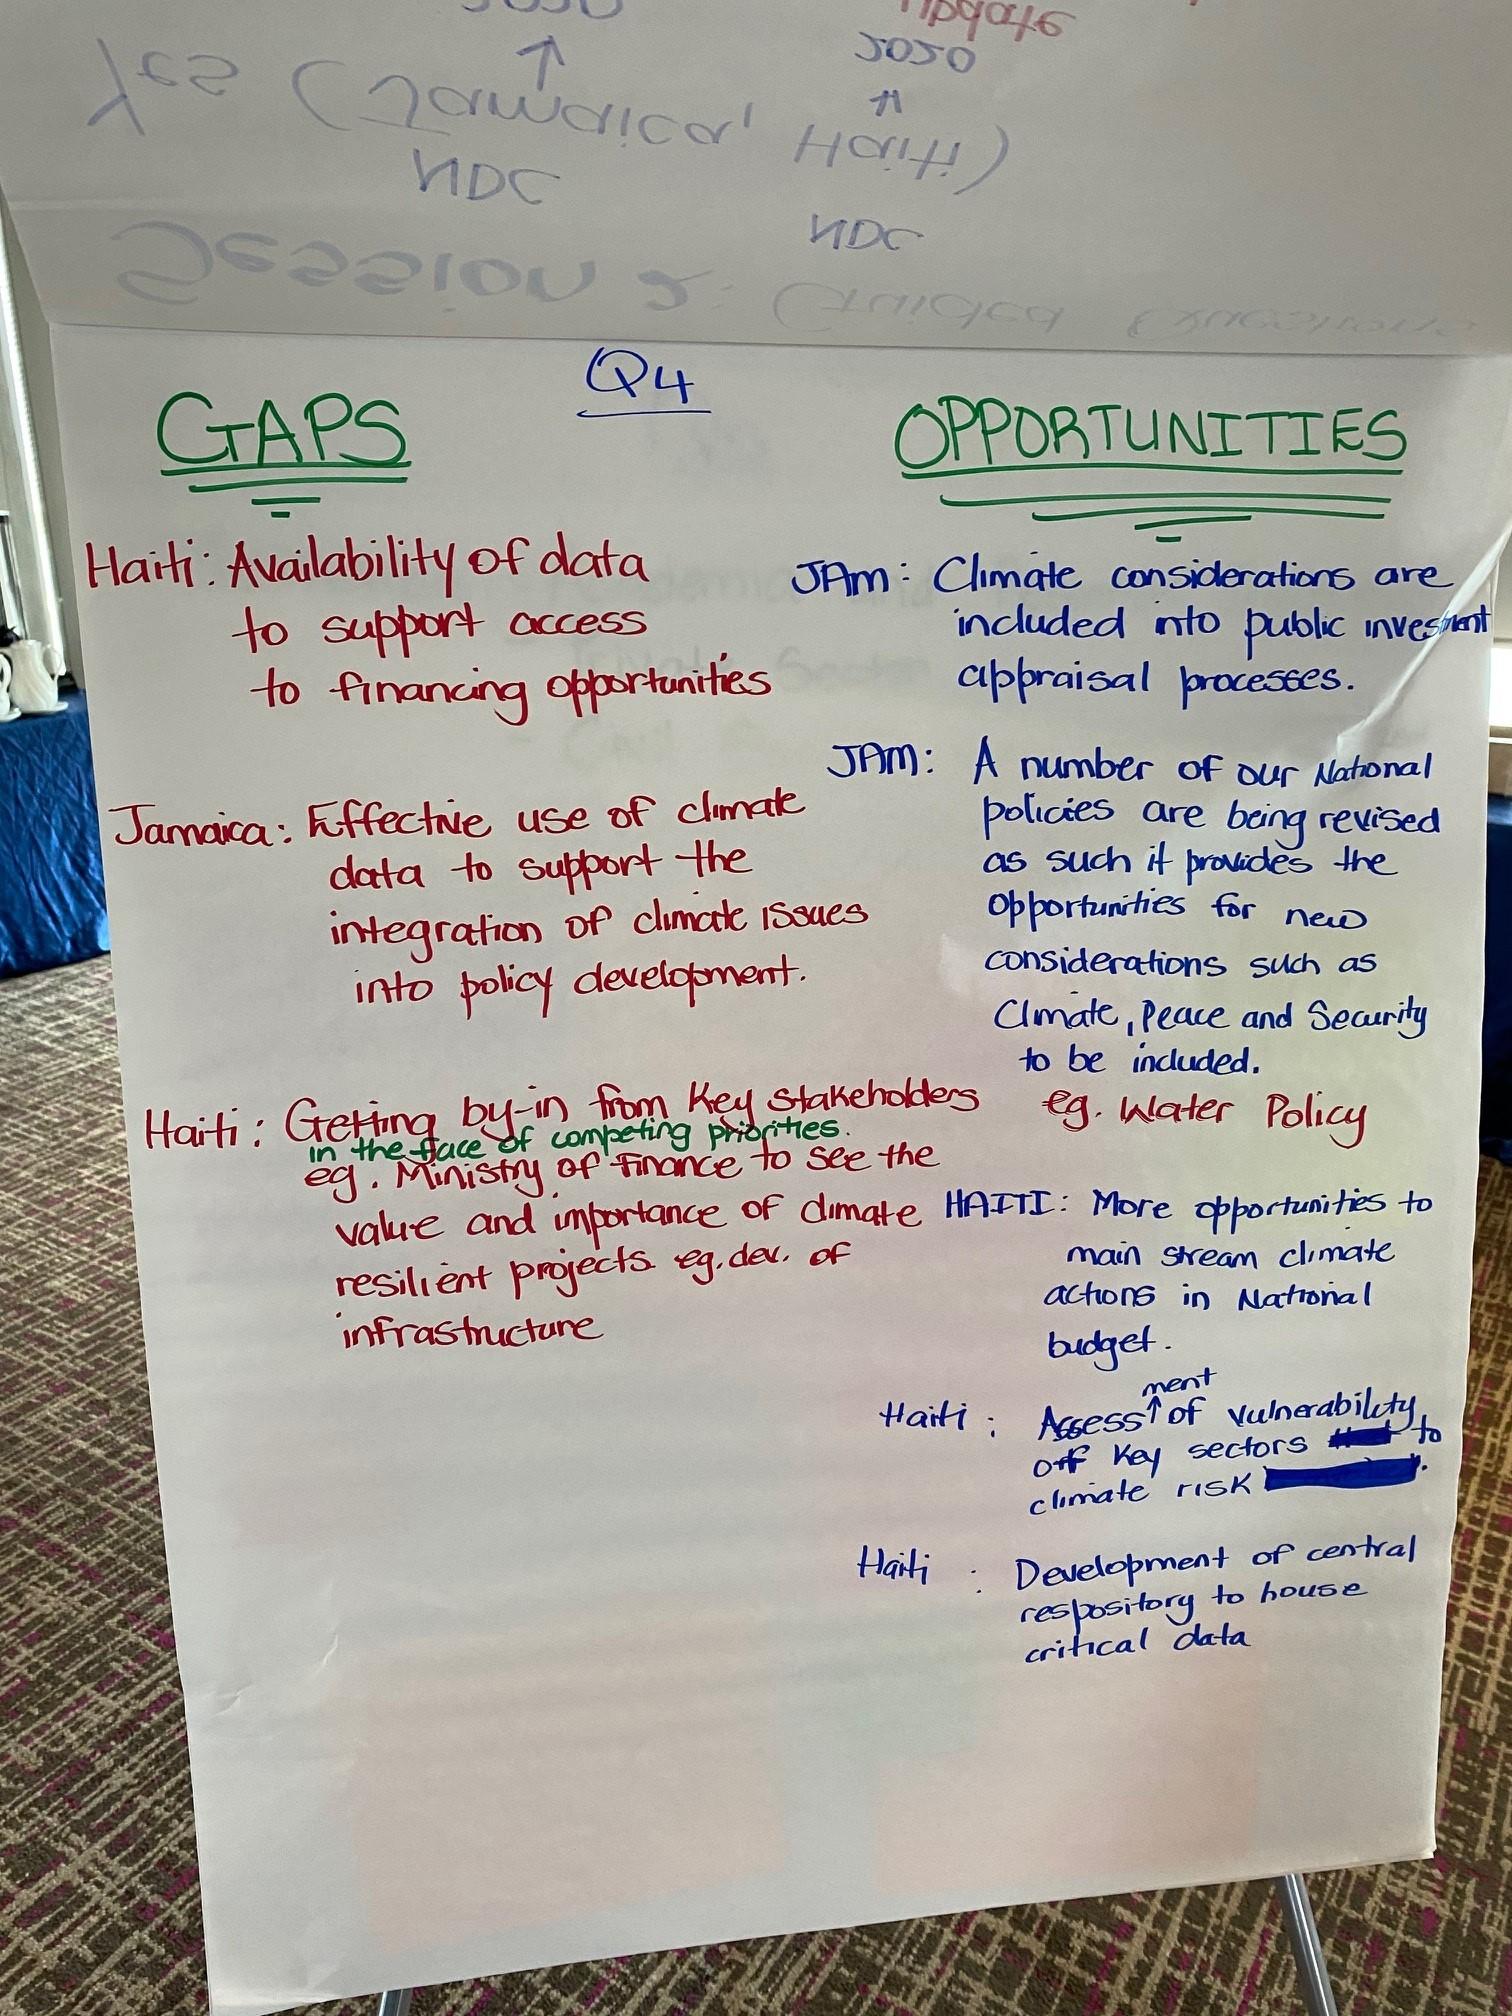 Update
2020
2020
Yes (Jamaica, Haiti)
NDC
NDC
Session 2: Guided Questions
Q4
GAPS
Haiti: Availability of data
to support access
to financing opportunities
Jamaica: Effective use of climate
data to support the
integration of climate issues
into policy development.
Haiti: Getting by-in from Key stakeholders
in the face of competing priorities.
eg. Ministry of Finance to see the
value and importance of climate
resilient projects eg. dev. of
infrastructure
OPPORTUNITIES
JAM: Climate considerations are
included into public investment
appraisal processes.
JAM: A number of our National
policies are being revised
as such it provides the
opportunities for new
considerations such as
Climate, Peace and Security
to be included.
eg. Water Policy
HAITI: More opportunities to
main stream climate
actions in National
budget.
ment
Haiti: Assess↑of vulnerability
off Key sectors to
climate risk .
Haiti : Development of central
respository to house
critical data